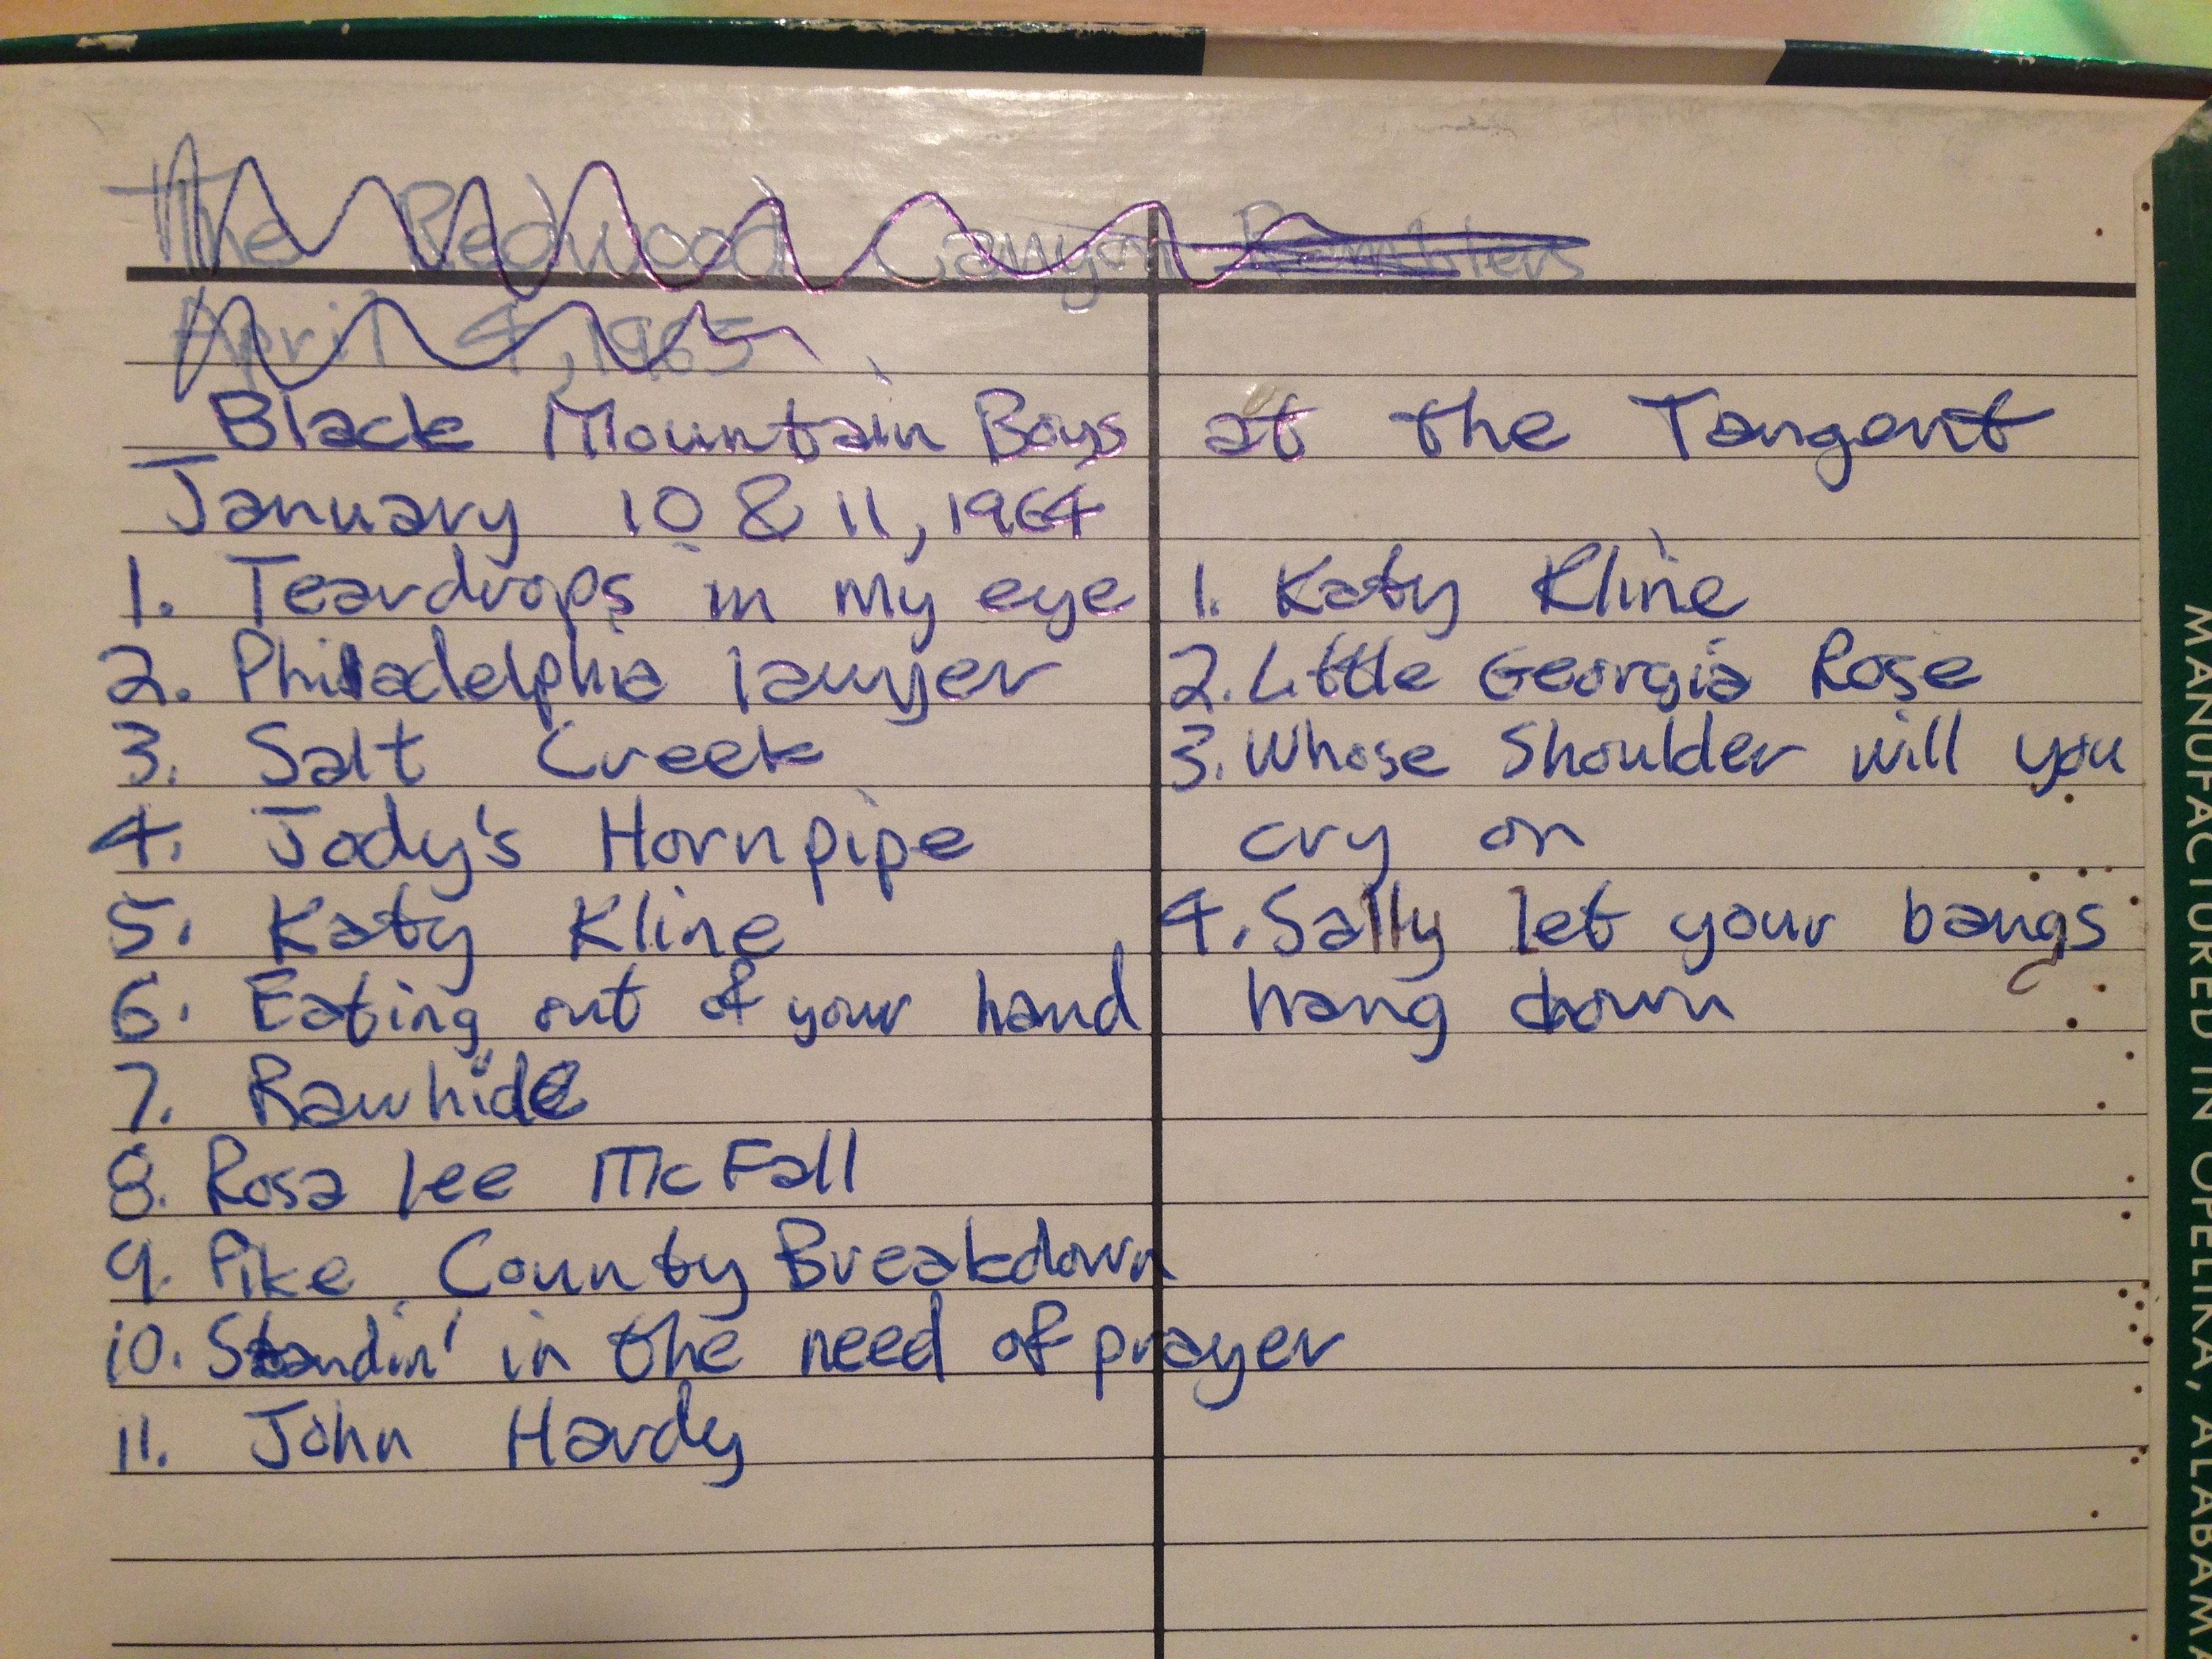 The Redwood Canyon Ramblers
April 4, 1965
Black Mountain Boys at the Tangent
January 10 & 11, 1964
1. Teardrops in my eye
2. Philadelphia lawyer
3. Salt Creek
4. Jody's Hornpipe
5. Katy Kline
6. Eating out of your hand
7. Rawhide
8. Rosa lee McFall
9. Pike County Breakdown
10. Standin' in the need of prayer
11. John Hardy
1. Katy Kline
2. Little Georgia Rose
3. Whose Shoulder will you
cry on
4. Sally let your bangs
hang down
MANUFACTURED IN OPELIKA, ALABAMA